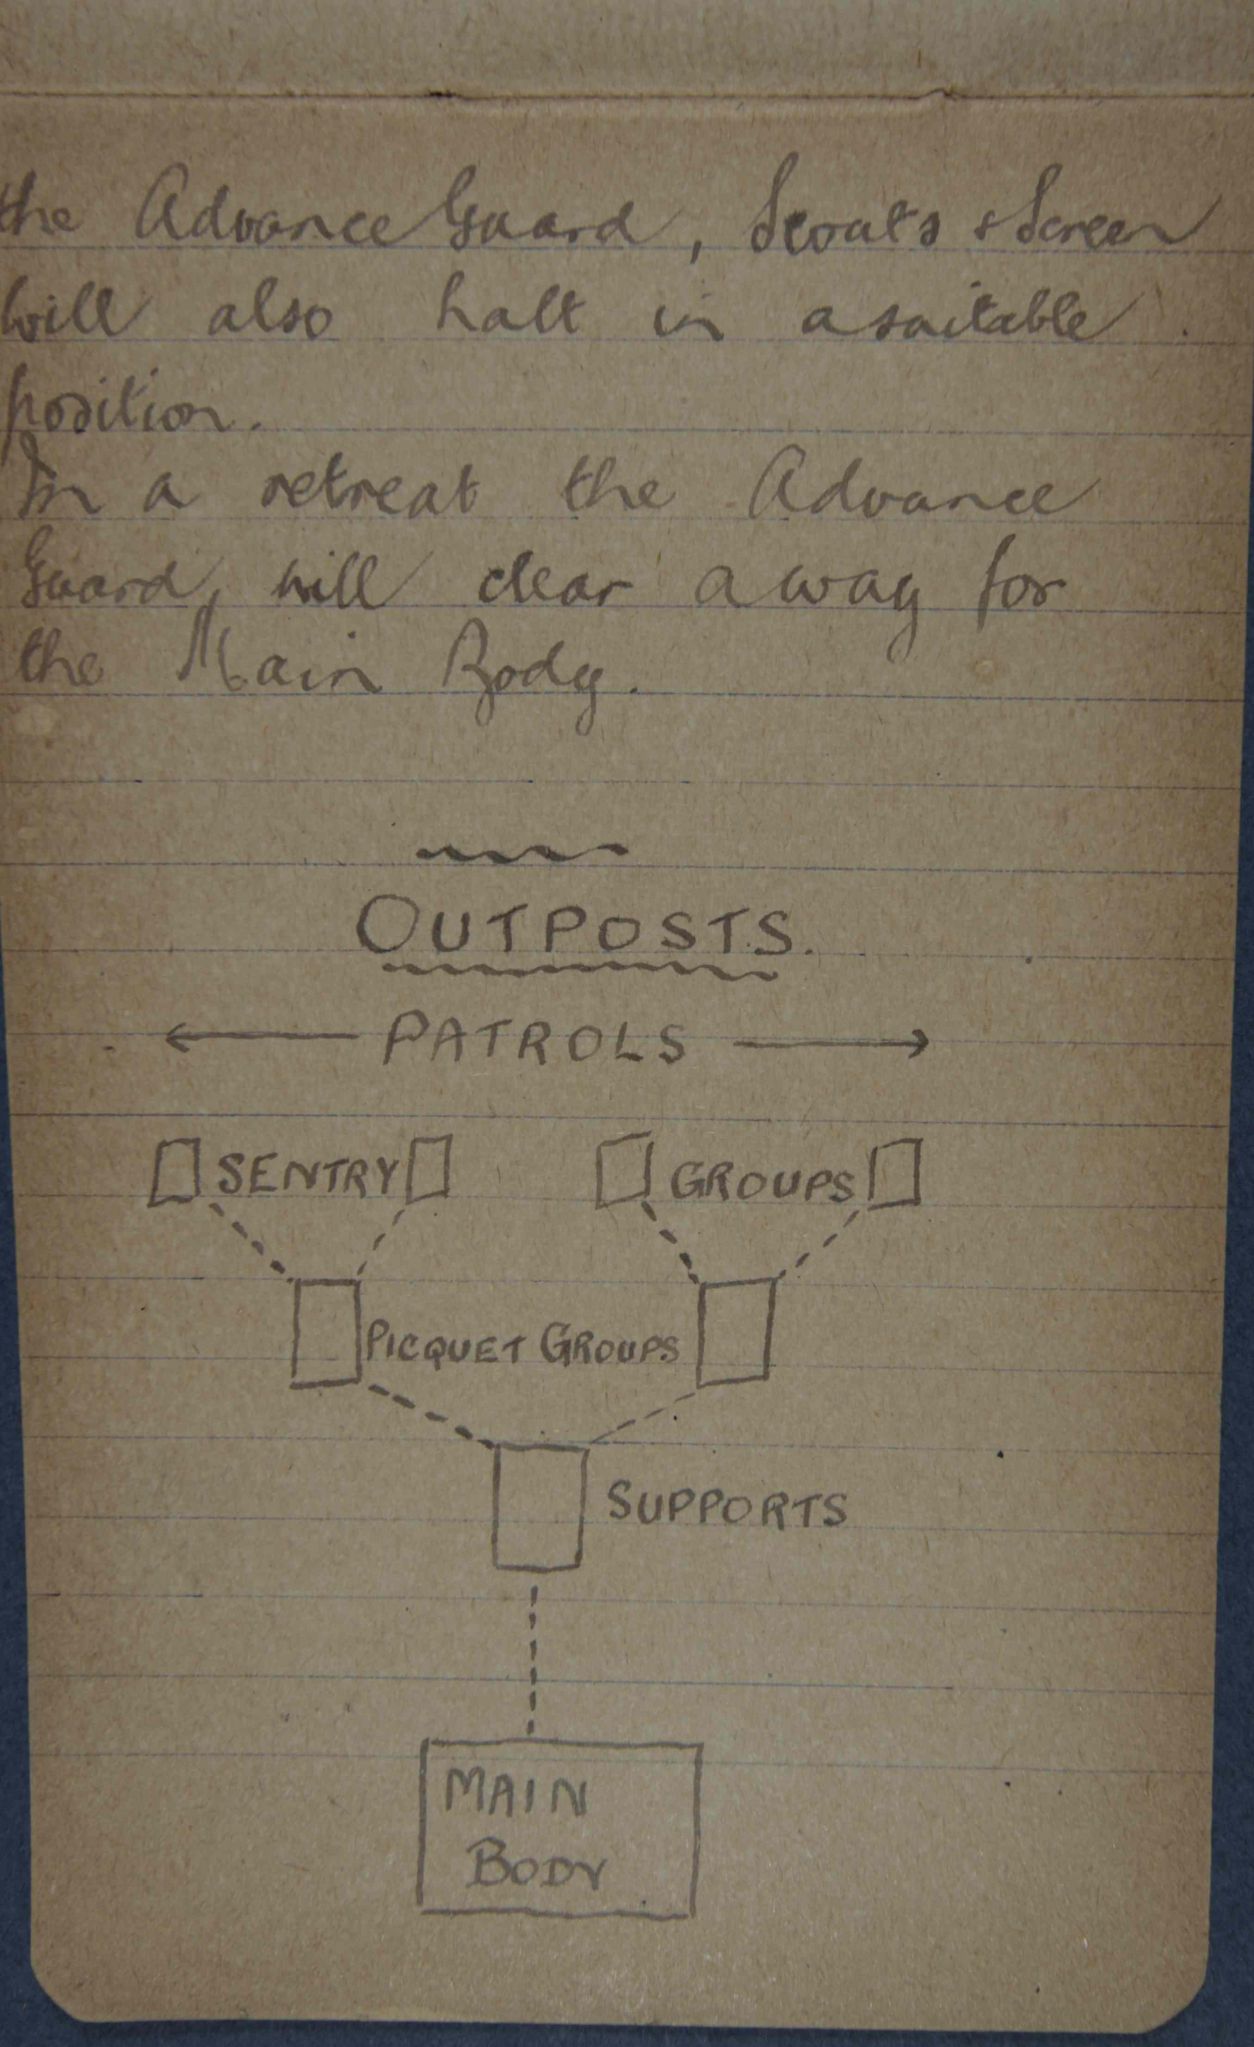 the Advance Guard, Scouts & Screen
will also halt in a suitable
position.
In a retreat the Advance
Guard, will clear a way for
the Main Body.
OUTPOSTS.
PATROLS
SENTRY GROUPS
PICQUET GROUPS
SUPPORTS
MAIN
BODY